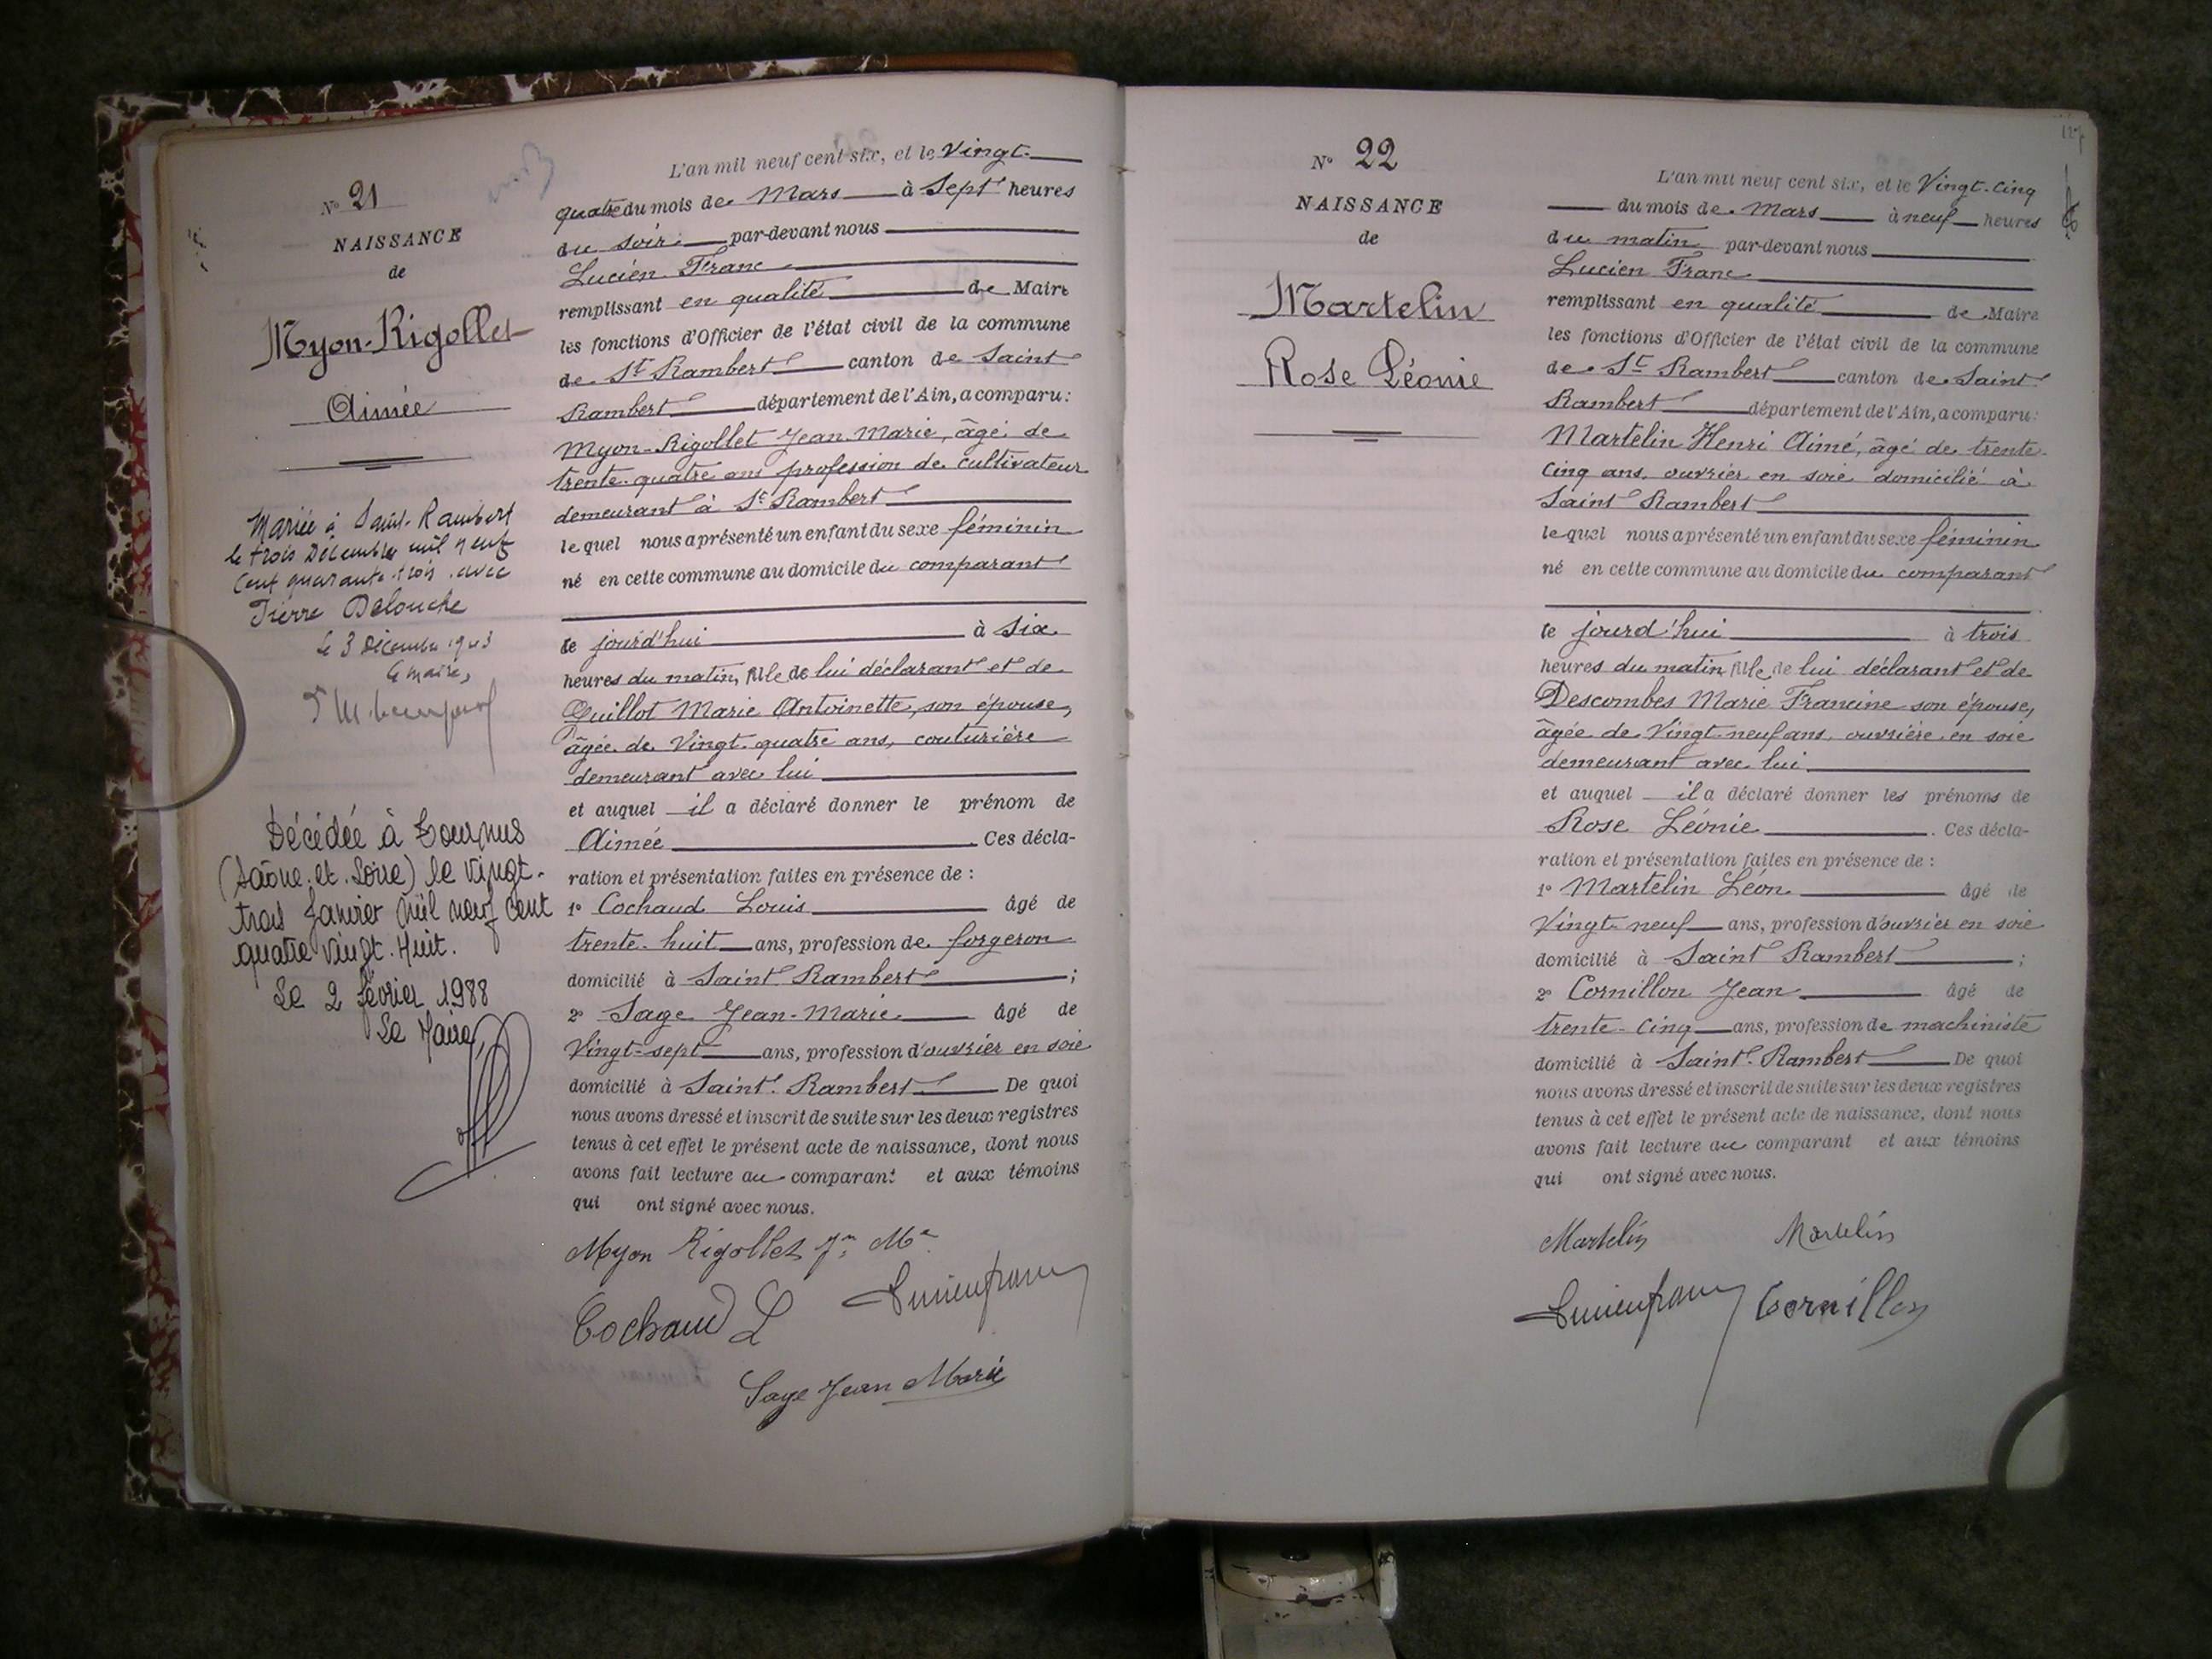 N° 21
NAISSANCE
de
Myon-Rigollet
Aimée
Mariée à Saint-Rambert
le trois Décembre mil neuf
cent quarante-trois avec
Pierre Delouche
le 3 Décembre 1943
le maire,
Décédée à Tournus
(Saône.et.Loire) le vingt.
trois Janvier mil neuf cent
quatre vingt. Huit.
Le 2 février 1988
Le Maire,
L'an mil neuf cent six, et le Vingt-
quatre du mois de Mars à Sept heures
du soir par-devant nous
Lucien Franc
remplissant en qualité de Maire
les fonctions d'Officier de l'état civil de la commune
de St Rambert canton de Saint
Rambert département de l'Ain, a comparu :
Myon-Rigollet Jean Marie, âgé de
trente-quatre ans profession de cultivateur
demeurant à St Rambert
lequel nous a présenté un enfant du sexe féminin
né en cette commune au domicile du comparant
le jourd'hui à six
heures du matin, fille de lui déclarant et de
Guillot Marie Antoinette, son épouse,
âgée de Vingt-quatre ans, couturière
demeurant avec lui
et auquel il a déclaré donner le prénom de
Aimée. Ces décla-
ration et présentation faites en présence de :
1° Cochaud Louis âgé de
trente-huit ans, profession de forgeron
domicilié à Saint Rambert ;
2° Sage Jean-Marie âgé de
Vingt-sept ans, profession d'ouvrier en soie
domicilié à Saint Rambert De quoi
nous avons dressé et inscrit de suite sur les deux registres
tenus à cet effet le présent acte de naissance, dont nous
avons fait lecture au comparant et aux témoins
qui ont signé avec nous.
Myon Rigollet Jn Me
Cochaud L Lucien franc
Sage Jean Marie
N° 22
NAISSANCE
de
Martelin
Rose Léonie
L'an mil neuf cent six, et le Vingt-cinq
du mois de Mars à neuf heures
du matin par-devant nous
Lucien Franc
remplissant en qualité de Maire
les fonctions d'Officier de l'état civil de la commune
de St Rambert canton de Saint
Rambert département de l'Ain, a comparu :
Martelin Henri Aimé, âgé de trente-
cinq ans, ouvrier en soie domicilié à
Saint Rambert
lequel nous a présenté un enfant du sexe féminin
né en cette commune au domicile du comparant
le jourd'hui à trois
heures du matin, fille de lui déclarant et de
Descombes Marie Francine son épouse,
âgée de Vingt-neuf ans, ouvrière en soie
demeurant avec lui
et auquel il a déclaré donner les prénoms de
Rose Léonie. Ces décla-
ration et présentation faites en présence de :
1° Martelin Léon âgé de
Vingt-neuf ans, profession d'ouvrier en soie
domicilié à Saint Rambert ;
2° Cornillon Jean âgé de
trente-cinq ans, profession de machiniste
domicilié à Saint Rambert De quoi
nous avons dressé et inscrit de suite sur les deux registres
tenus à cet effet le présent acte de naissance, dont nous
avons fait lecture au comparant et aux témoins
qui ont signé avec nous.
Martelin Martelin
Lucien franc Cornillon